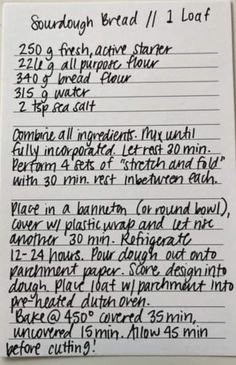 Sourdough Bread // 1 Loaf
250 g fresh, active starter
226 g all purpose flour
340 g bread flour
315 g water
2 tsp sea salt
Combine all ingredients. Mix until
fully incorporated. Let rest 30 min.
Perform 4 sets of "stretch and fold"
with 30 min. rest inbetween each.
Place in a banneton (or round bowl),
cover w/ plastic wrap and let rise
another 30 min. Refrigerate
12-24 hours. Pour dough out onto
parchment paper. Score design into
dough. Place loaf w/ parchment into
pre-heated dutch oven.
Bake @ 450° covered 35 min,
uncovered 15 min. Allow 45 min
before cutting!